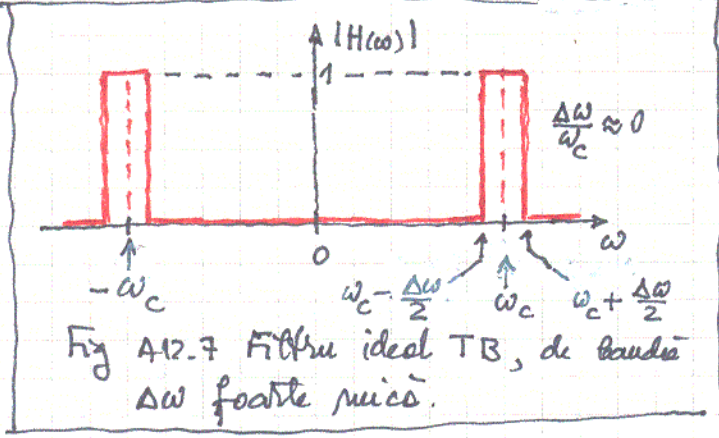 |H(ω)|
1
Δω/ω_c ≈ 0
0
ω
-ω_c
ω_c - Δω/2
ω_c
ω_c + Δω/2
Fig A12.7 Filtru ideal TB, de bandă
Δω foarte mică.